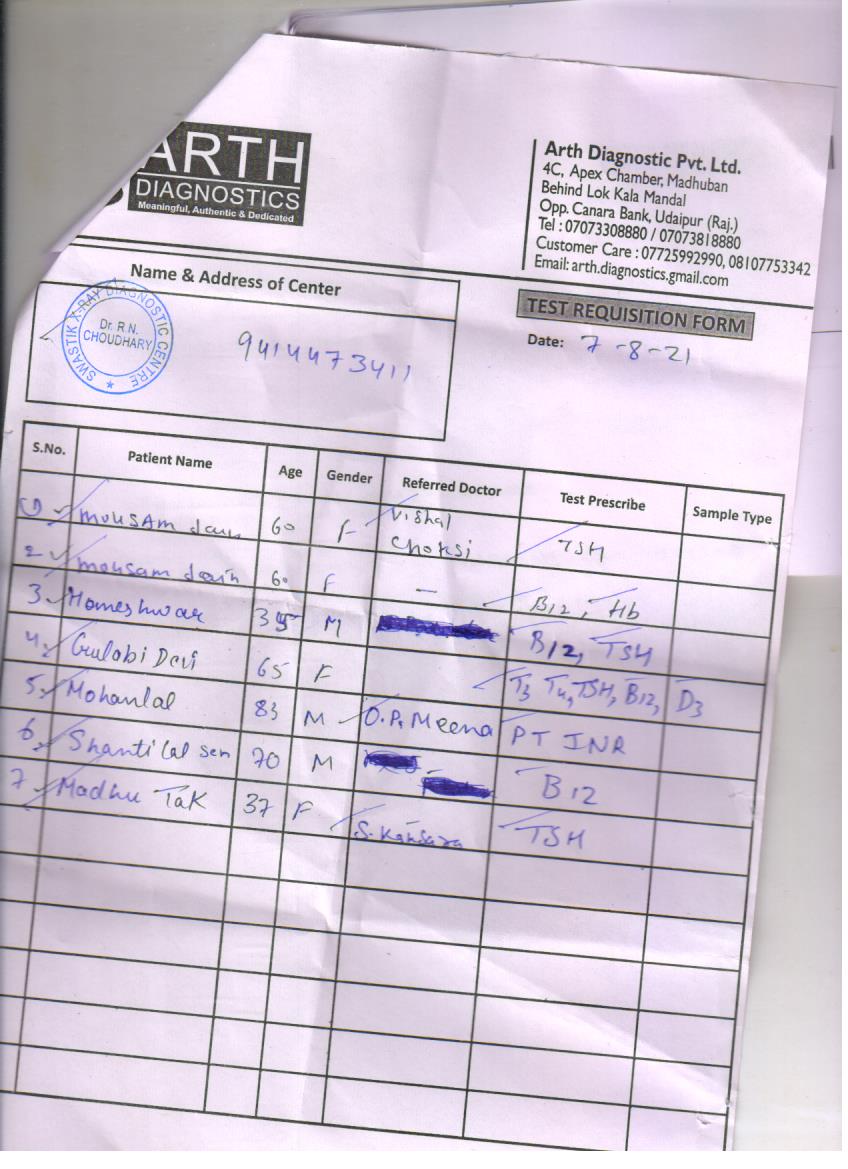 ARTH
DIAGNOSTICS
Meaningful, Authentic & Dedicated
Arth Diagnostic Pvt. Ltd.
4C, Apex Chamber, Madhuban
Behind Lok Kala Mandal
Opp. Canara Bank, Udaipur (Raj.)
Tel : 07073308880 / 07073818880
Customer Care : 07725992990, 08107753342
Email: arth.diagnostics.gmail.com
Name & Address of Center
SWASTIK X-RAY DIAGNOSTIC CENTRE
Dr. R.N.
CHOUDHARY
9414473411
TEST REQUISITION FORM
Date: 7-8-21
S.No. Patient Name Age Gender Referred Doctor Test Prescribe Sample Type
1 Mousam Jain 60 F Vishal Choksi TSH
2 mousam Jain 60 F — B12, Hb
3 Homeshwar 35 M B12, TSH
4 Gulabi Devi 65 F T3 T4, TSH, B12, D3
5 Mohanlal 83 M O.P. Meena PT INR
6 Shantilal Sen 70 M B12
7 Madhu Tak 37 F S. Kansara TSH